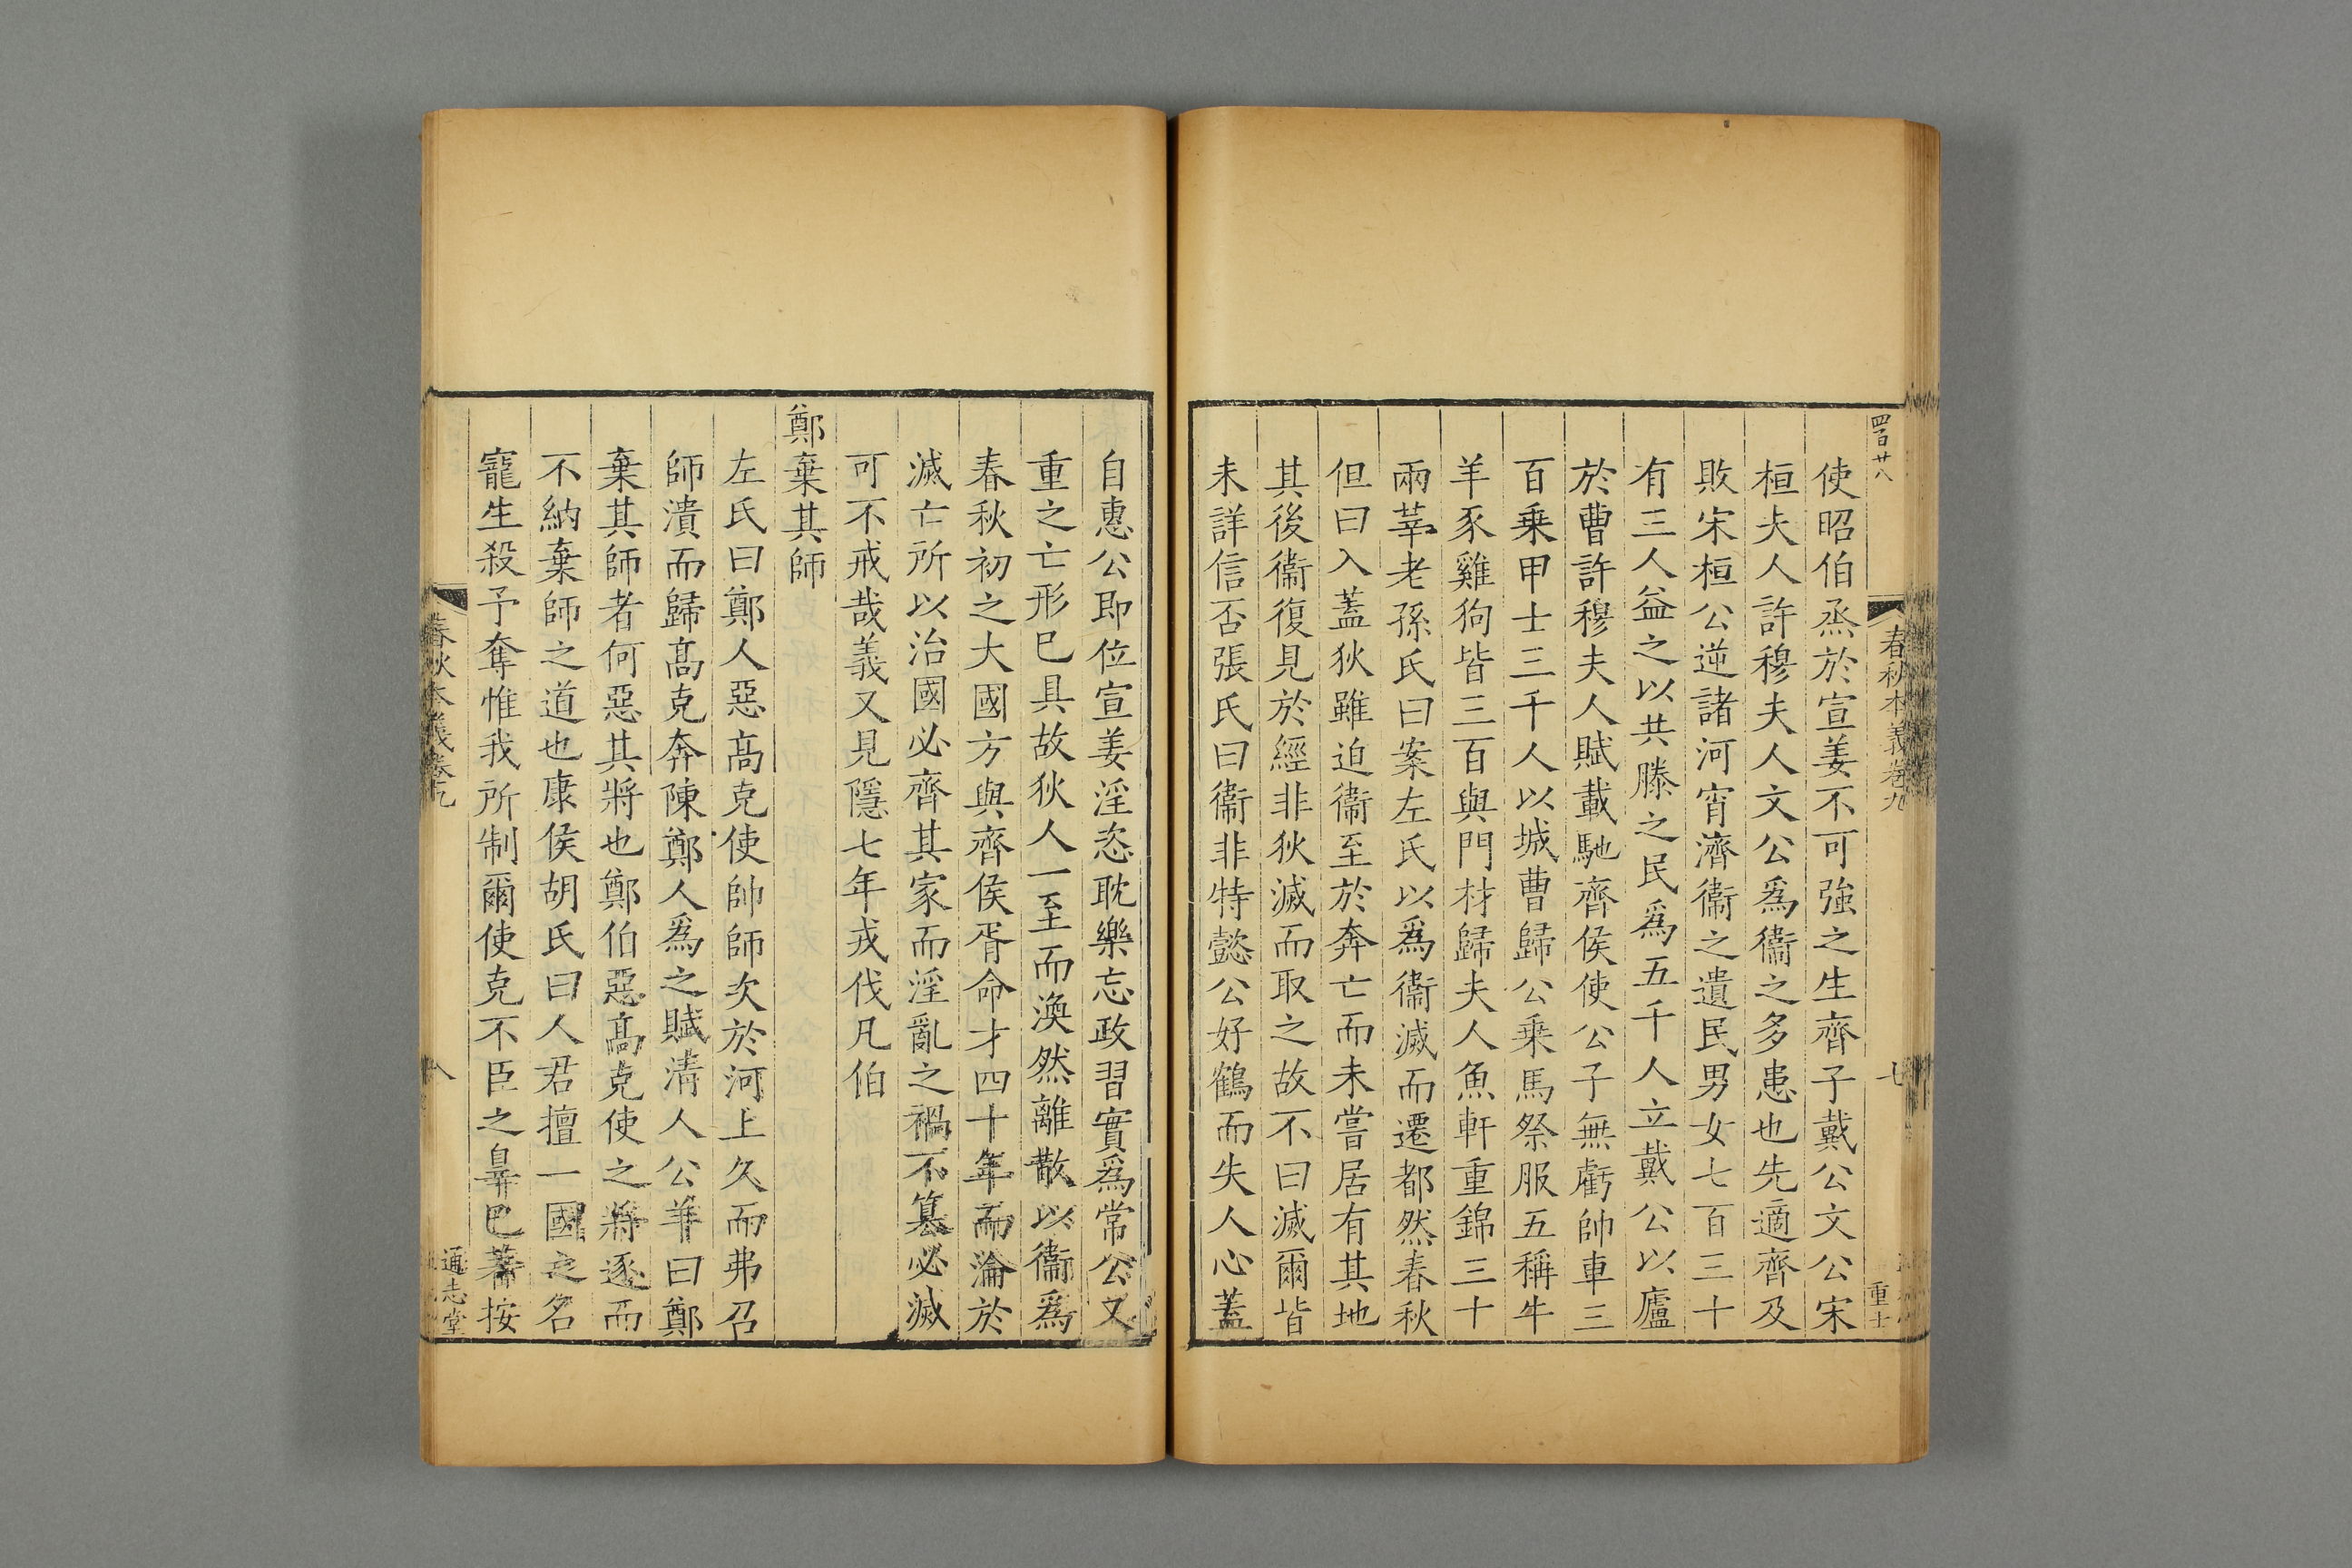 四百廿八
春秋本義卷九
七
重士
使昭伯烝於宣姜不可強之生齊子戴公文公宋
桓夫人許穆夫人文公爲衞之多患也先適齊及
敗宋桓公逆諸河宵濟衞之遺民男女七百三十
有三人益之以共滕之民爲五千人立戴公以廬
於曹許穆夫人賦載馳齊侯使公子無虧帥車三
百乗甲士三千人以城曹歸公乗馬祭服五稱牛
羊豕雞狗皆三百與門材歸夫人魚軒重錦三十
兩莘老孫氏曰案左氏以爲衞滅而遷都然春秋
但曰入蓋狄雖迫衞至於奔亡而未嘗居有其地
其後衞復見於經非狄滅而取之故不曰滅爾皆
未詳信否張氏曰衞非特懿公好鶴而失人心蓋
自惠公即位宣姜淫恣耽樂忘政習實爲常公又
重之亡形巳具故狄人一至而渙然離散以衞爲
春秋初之大國方與齊侯胥命才四十年而淪於
滅亡所以治國必齊其家而淫亂之禍不篡必滅
可不戒哉義又見隱七年戎伐凡伯
鄭棄其師
左氏曰鄭人惡髙克使帥師次於河上久而弗召
師潰而歸髙克奔陳鄭人爲之賦清人公羊曰鄭
棄其師者何惡其將也鄭伯惡髙克使之將逐而
不納棄師之道也康侯胡氏曰人君擅一國之名
寵生殺予奪惟我所制爾使克不臣之辠巳著按
春秋本義卷九
八
通志堂